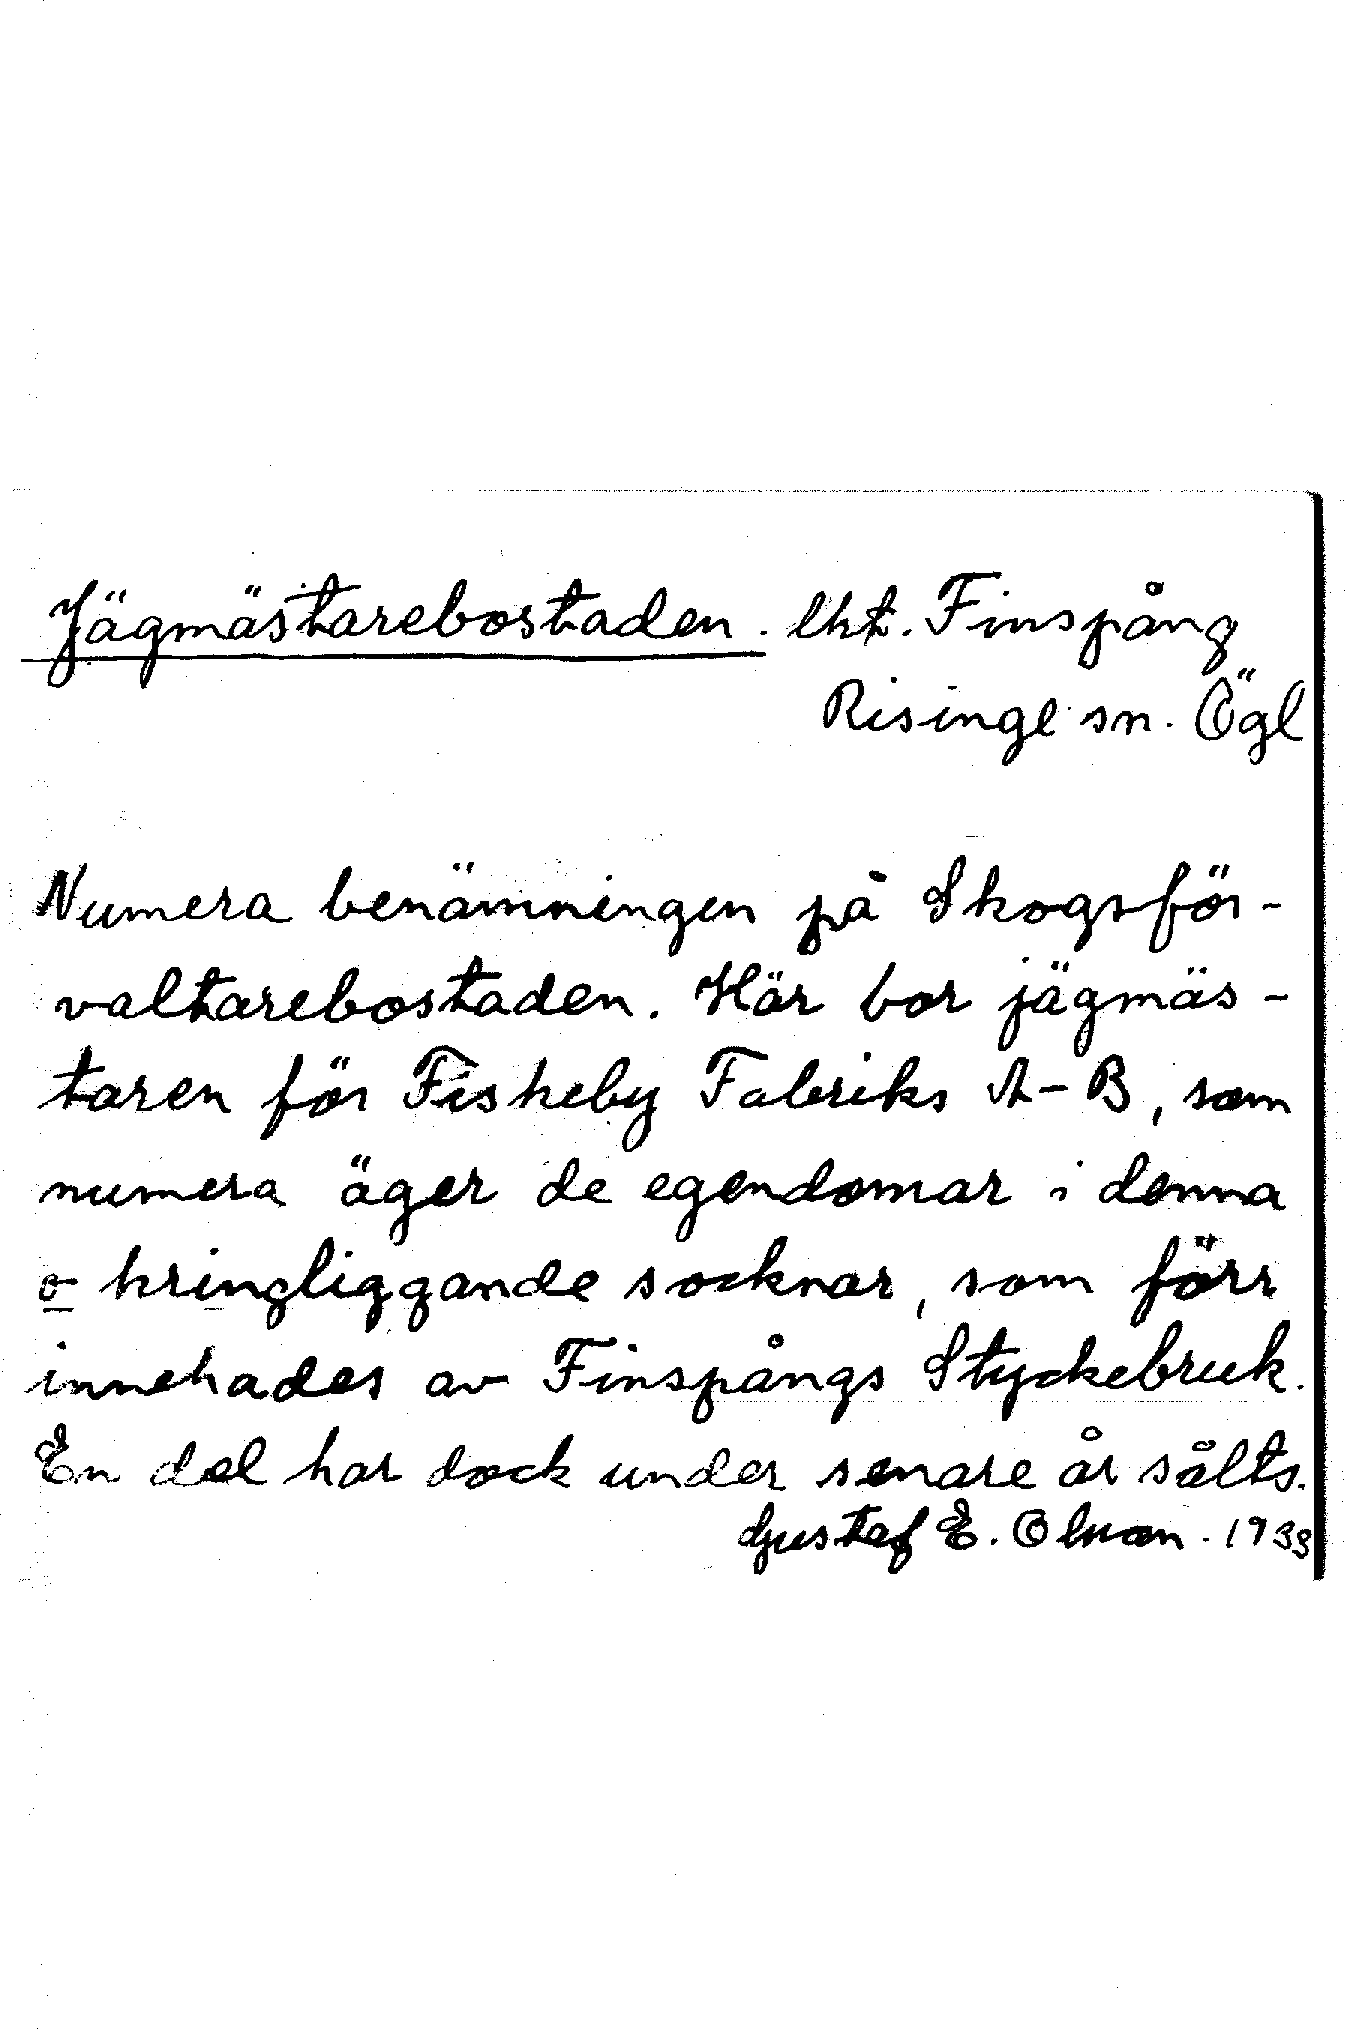 Jägmästarebostaden. lht. Finspång
Risinge sn. Ögl
Numera benämningen på Skogsför-
valtarebostaden. Här bor jägmäs-
taren för Fiskeby Fabriks A-B, som
numera äger de egendomar i denna
o kringliggande socknar, som förr
innehades av Finspångs Styckebruk.
En del har dock under senare år sålts.
Gustaf E. Olsson. 1933